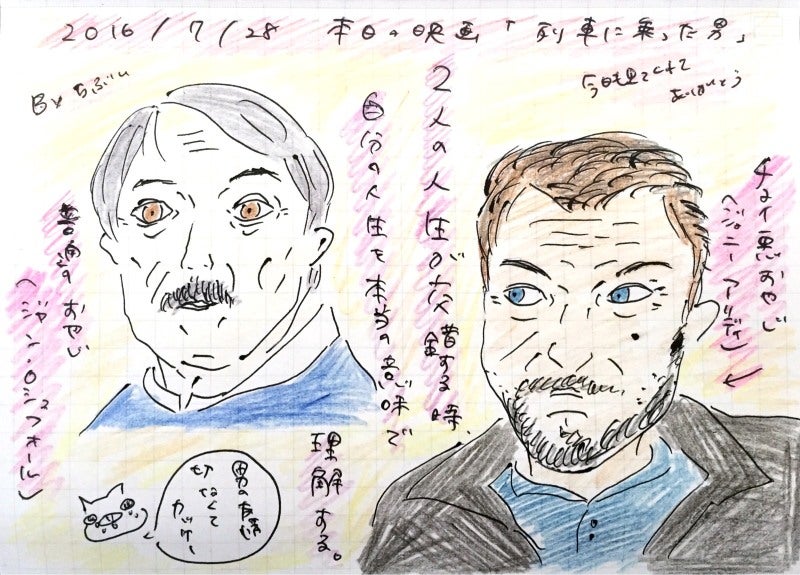 2016/7/28 本日の映画「列車に乗った男」
By らぶぃ
今日も見てくれて
ありがとう
チョイ悪おやじ
(ジョニー アリディ)
2人の人生が交錯する時、
自分の人生を本当の意味で
理解する。
普通のおやじ
(ジャン・ロシュフォール)
男の友情
せつなくて
カッケー